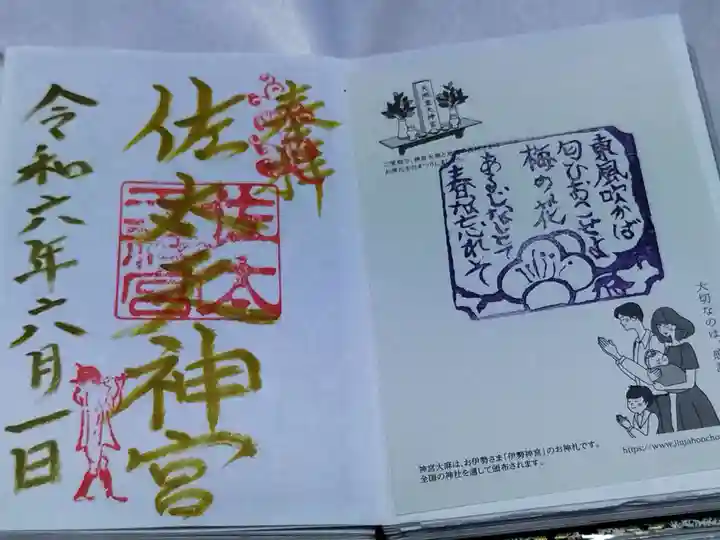 奉拝
佐太天神宮
令和六年六月一日
東風吹かば
匂ひおこせよ
梅の花
あるじなしとて
春な忘れそ
大切なのは、
神宮大麻は、お伊勢さま「伊勢神宮」のお神札です。
全国の神社を通して頒布されます。
https://www.jinjahoncho